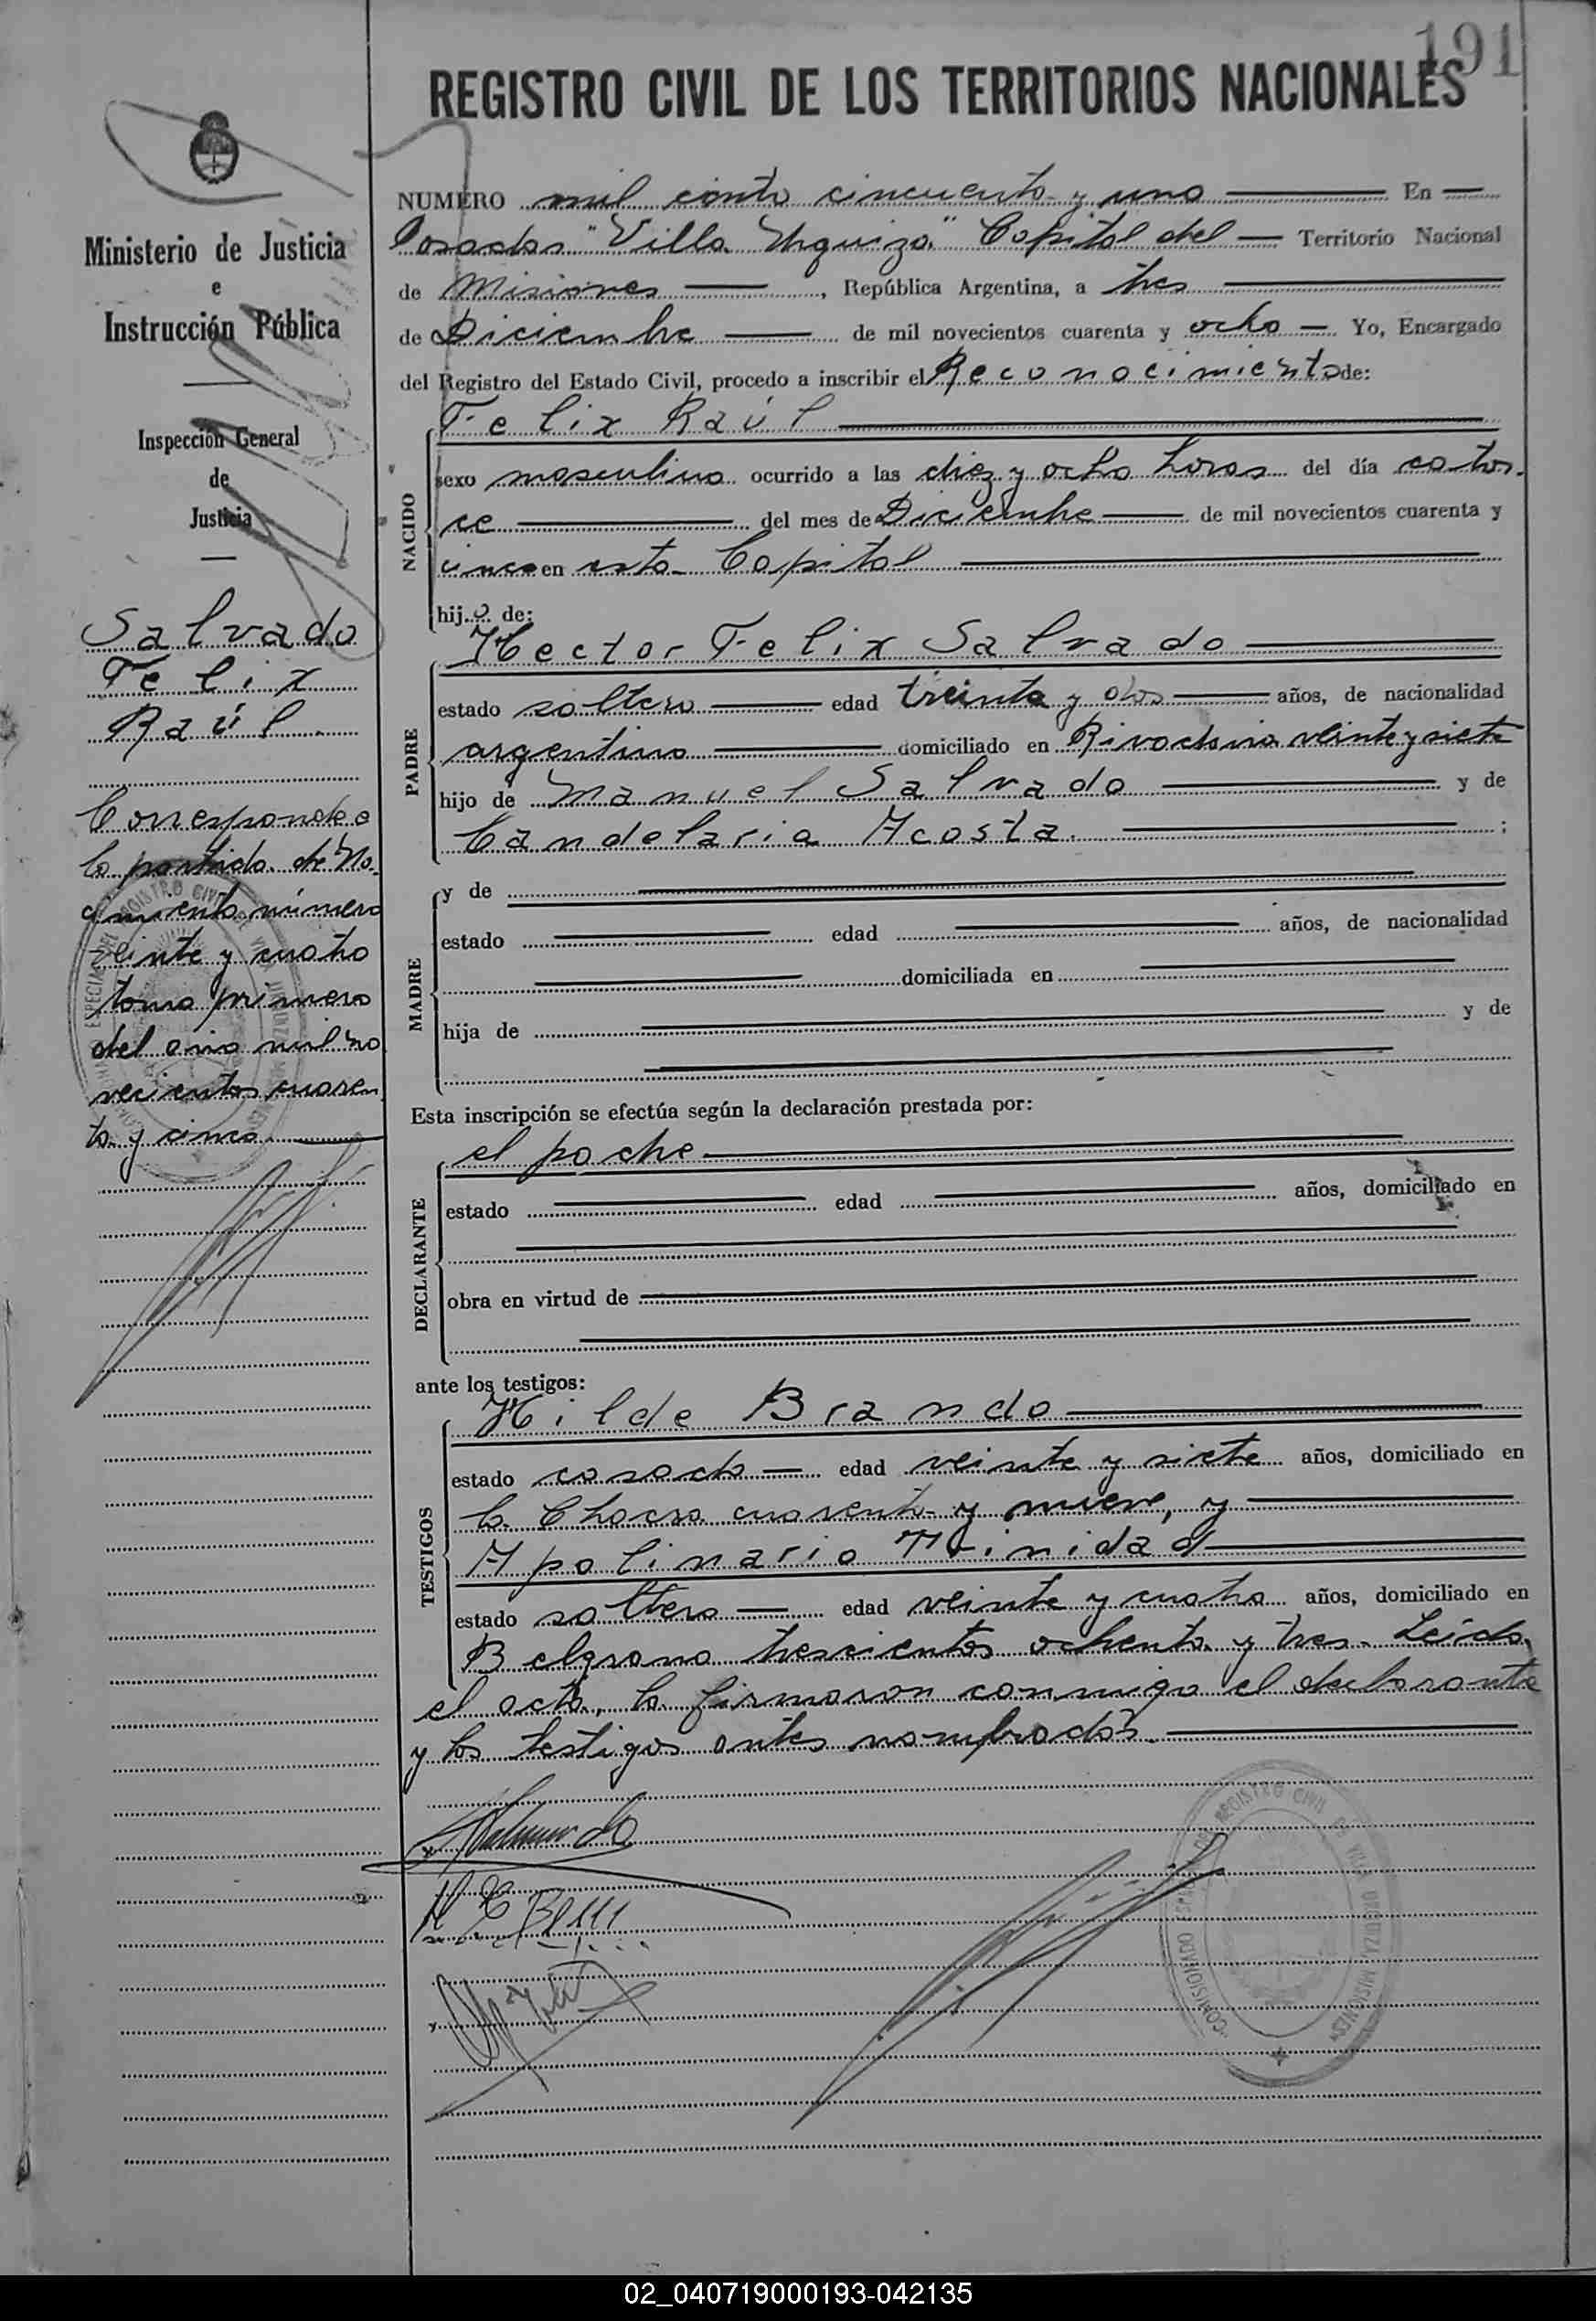 191
REGISTRO CIVIL DE LOS TERRITORIOS NACIONALES
Ministerio de Justicia
e
Instrucción Pública
Inspección General
de
Justicia
Salvado
Felix
Raúl
Corresponde a
la partida de Na-
cimiento número
veinte y cuatro
tomo primero
del año mil no
vecientos cuaren
ta y cinco
NUMERO mil ciento cincuenta y uno En
Posadas "Villa Urquiza" Capital del Territorio Nacional
de Misiones, República Argentina, a tres
de Diciembre de mil novecientos cuarenta y ocho Yo, Encargado
del Registro del Estado Civil, procedo a inscribir el Reconocimiento de:
Felix Raúl
NACIDO
sexo masculino ocurrido a las diez y ocho horas del día cator-
ce del mes de Diciembre de mil novecientos cuarenta y
cinco en esta Capital
hijo de:
Hector Felix Salvado
PADRE
estado soltero edad treinta y dos años, de nacionalidad
argentino domiciliado en Rivadavia veinte y siete
hijo de Manuel Salvado y de
Candelaria Acosta. ;
MADRE
y de
estado edad años, de nacionalidad
domiciliada en
hija de y de
Esta inscripción se efectúa según la declaración prestada por:
el padre
DECLARANTE
estado edad años, domiciliado en
obra en virtud de
ante los testigos:
Hilde Brando
TESTIGOS
estado casado edad veinte y siete años, domiciliado en
la Chacra cuarenta y nueve, y
Apolinario Trinidad
estado soltero edad veinte y cuatro años, domiciliado en
Belgrano trescientos ochenta y tres. Leída
el acta, la firmaron conmigo el declarante
y los testigos antes nombrados.
COMISIONADO ESPECIAL DEL REGISTRO CIVIL DE VILLA URQUIZA MISIONES
02_040719000193-042135